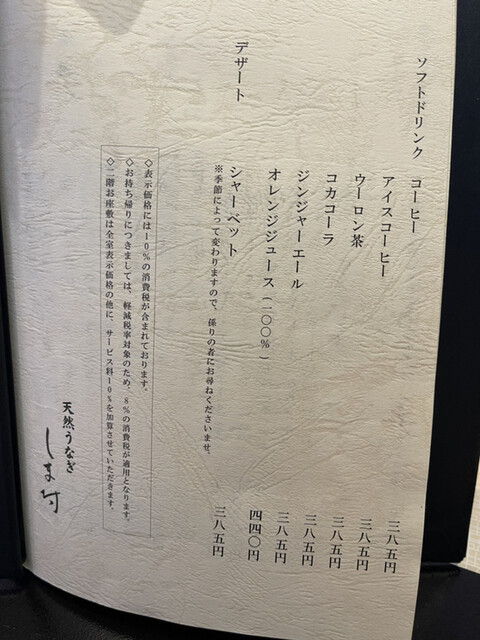 ソフトドリンク
コーヒー 三八五円
アイスコーヒー 三八五円
ウーロン茶 三八五円
コカコーラ 三八五円
ジンジャーエール 三八五円
オレンジジュース(一〇〇%) 四四〇円
デザート
シャーベット 三八五円
※季節によって変わりますので、係りの者にお尋ねくださいませ。
◇表示価格には10%の消費税が含まれております。
◇お持ち帰りにつきましては、軽減税率対象のため、8%の消費税が適用となります。
◇二階お座敷は全室表示価格の他に、サービス料10%を加算させていただきます。
天然うなぎ
しま村